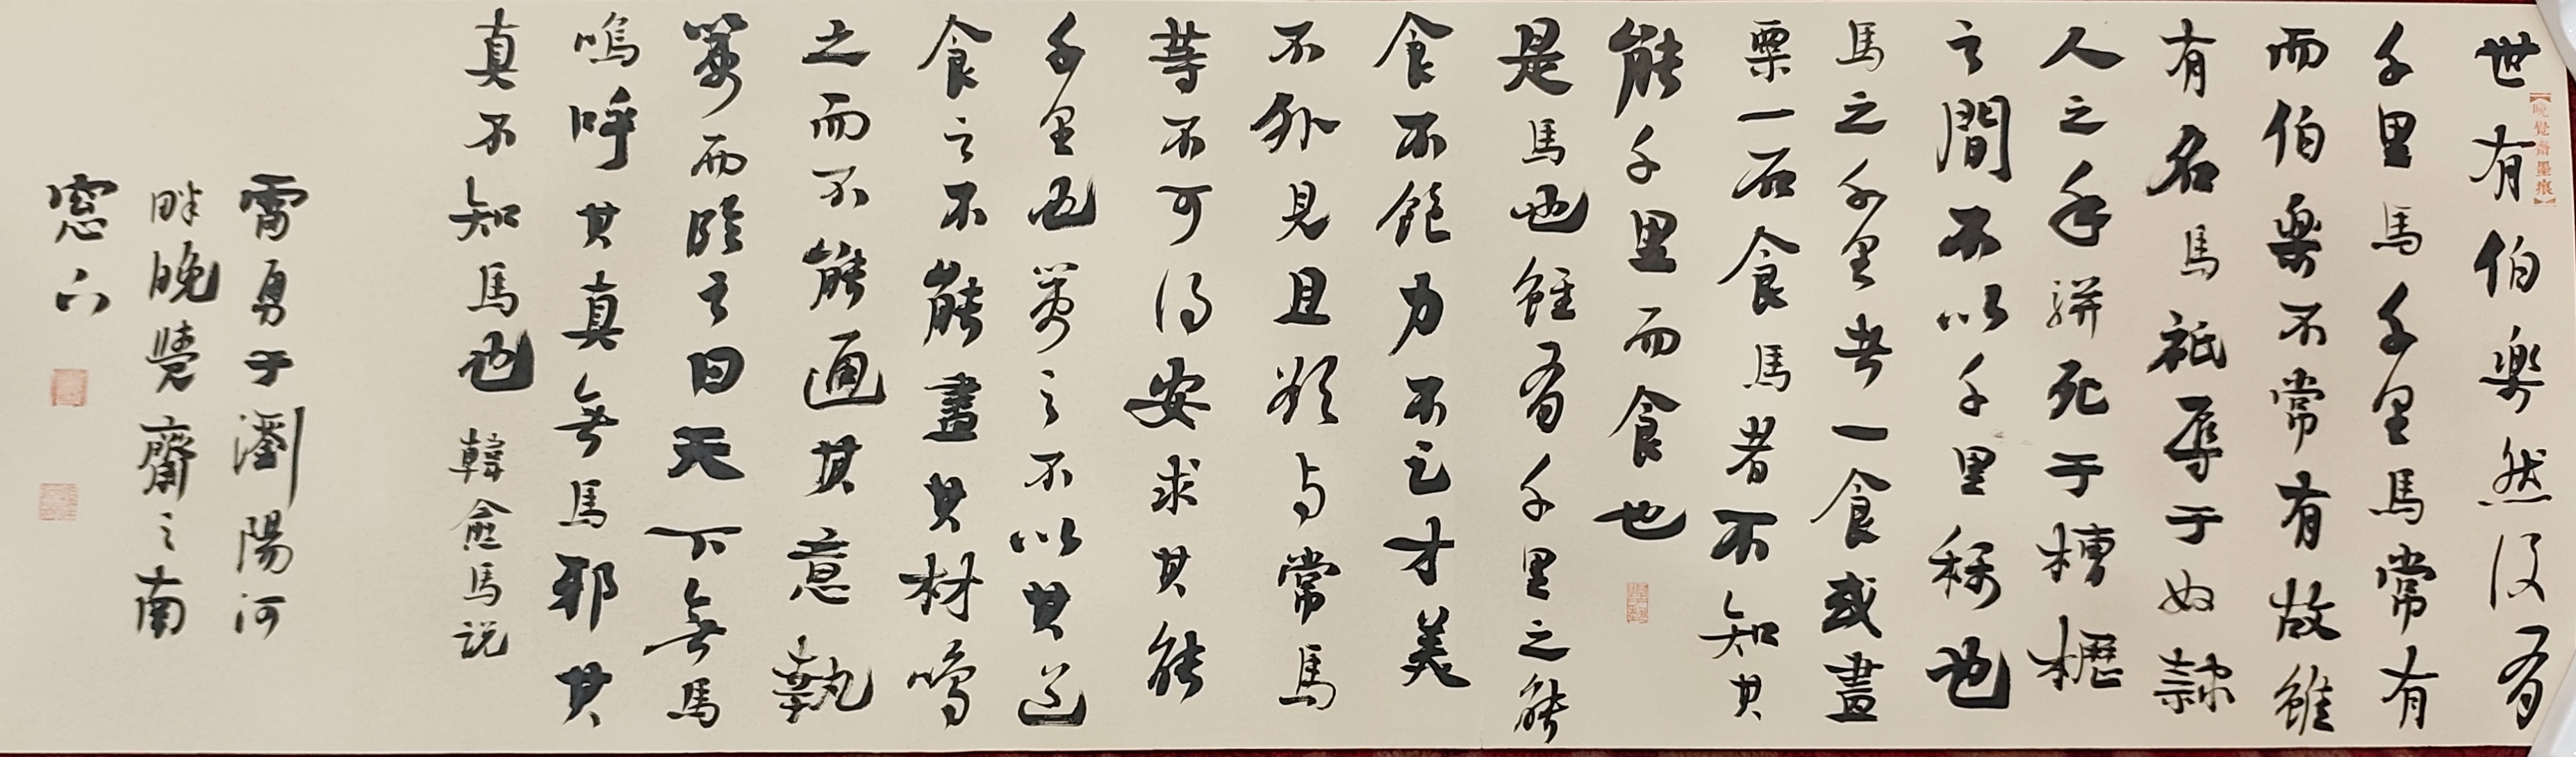 【晚覺齋墨痕】
世有伯樂然後有
千里馬千里馬常有
而伯樂不常有故雖
有名馬祗辱于奴隸
人之手駢死于槽櫪
之間不以千里稱也
馬之千里者一食或盡
粟一石食馬者不知其
能千里而食也
是馬也雖有千里之能
食不飽力不足才美
不外見且欲与常馬
等不可得安求其能
千里也策之不以其道
食之不能盡其材鳴
之而不能通其意執
策而臨之曰天下無馬
嗚呼其真無馬邪其
真不知馬也 韓愈馬說
雷勇于瀏陽河
畔晚覺齋之南
窗下